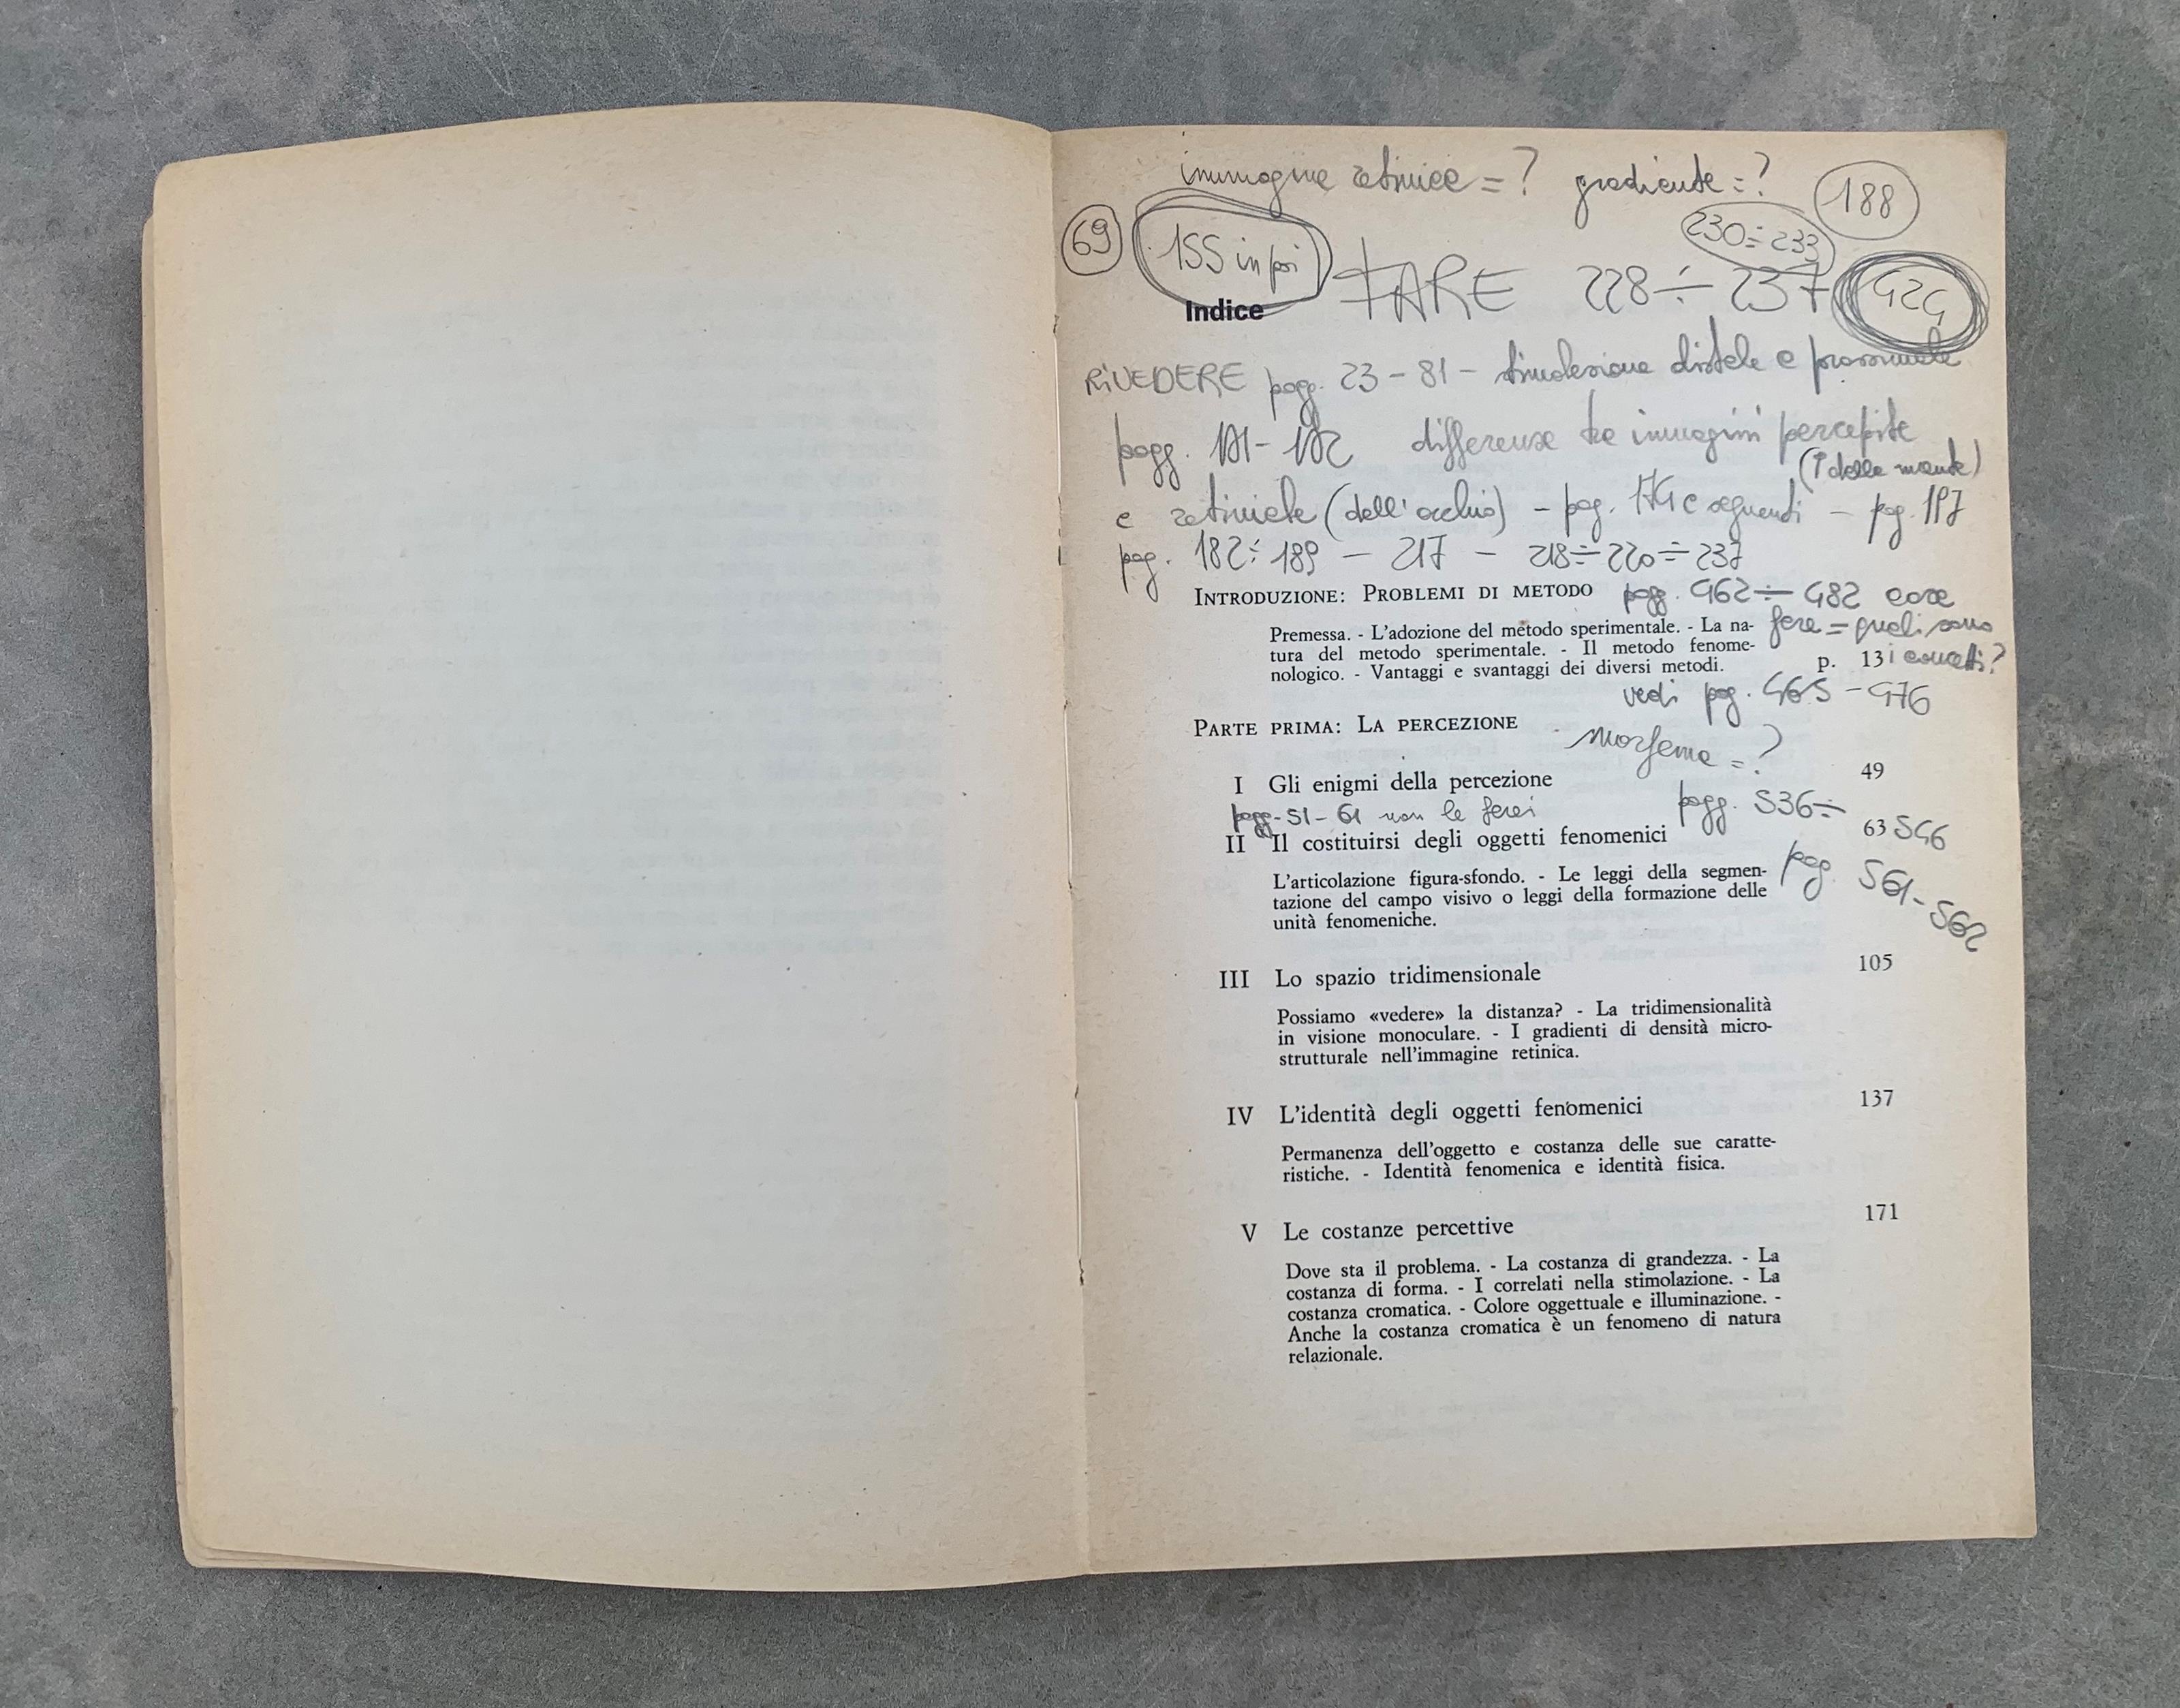 immagine retinica = ? gradiente = ? 188
69 155 in poi 230÷233
FARE 228÷237 424
Indice
RIVEDERE pagg. 23-81 - stimolazione distale e prossimale
pagg. differenza tra immagini percepite
(della mente)
e retiniche (dell'occhio) - pag. 174 e seguenti - pag. 197
pag. 182÷189 - 217 - 218÷220÷237
INTRODUZIONE: PROBLEMI DI METODO pagg. 462÷482 cosa
Premessa. - L'adozione del metodo sperimentale. - La na- fare = quali sono
tura del metodo sperimentale. - Il metodo fenome-
nologico. - Vantaggi e svantaggi dei diversi metodi. p. 13 i concetti?
vedi pag. 465-476
PARTE PRIMA: LA PERCEZIONE
morfema = ?
I Gli enigmi della percezione 49
pagg. 51-61 non le farei pagg. 536÷
II Il costituirsi degli oggetti fenomenici 63 546
L'articolazione figura-sfondo. - Le leggi della segmen- pag. 561-562
tazione del campo visivo o leggi della formazione delle
unità fenomeniche.
III Lo spazio tridimensionale 105
Possiamo «vedere» la distanza? - La tridimensionalità
in visione monoculare. - I gradienti di densità micro-
strutturale nell'immagine retinica.
IV L'identità degli oggetti fenomenici 137
Permanenza dell'oggetto e costanza delle sue caratte-
ristiche. - Identità fenomenica e identità fisica.
V Le costanze percettive 171
Dove sta il problema. - La costanza di grandezza. - La
costanza di forma. - I correlati nella stimolazione. - La
costanza cromatica. - Colore oggettuale e illuminazione. -
Anche la costanza cromatica è un fenomeno di natura
relazionale.